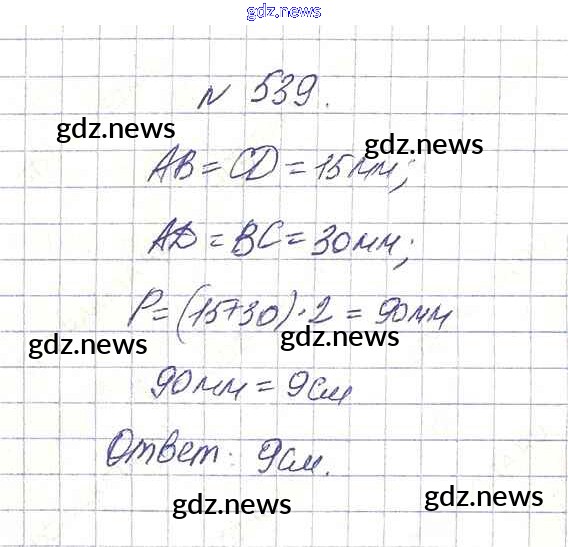 gdz.news
N 539.
gdz.news
gdz.news
AB = CD = 15мм;
AD = BC = 30мм;
P = (15+30)·2 = 90мм
gdz.news
gdz.news
90мм = 9см
Ответ: 9см.
gdz.news
gdz.news